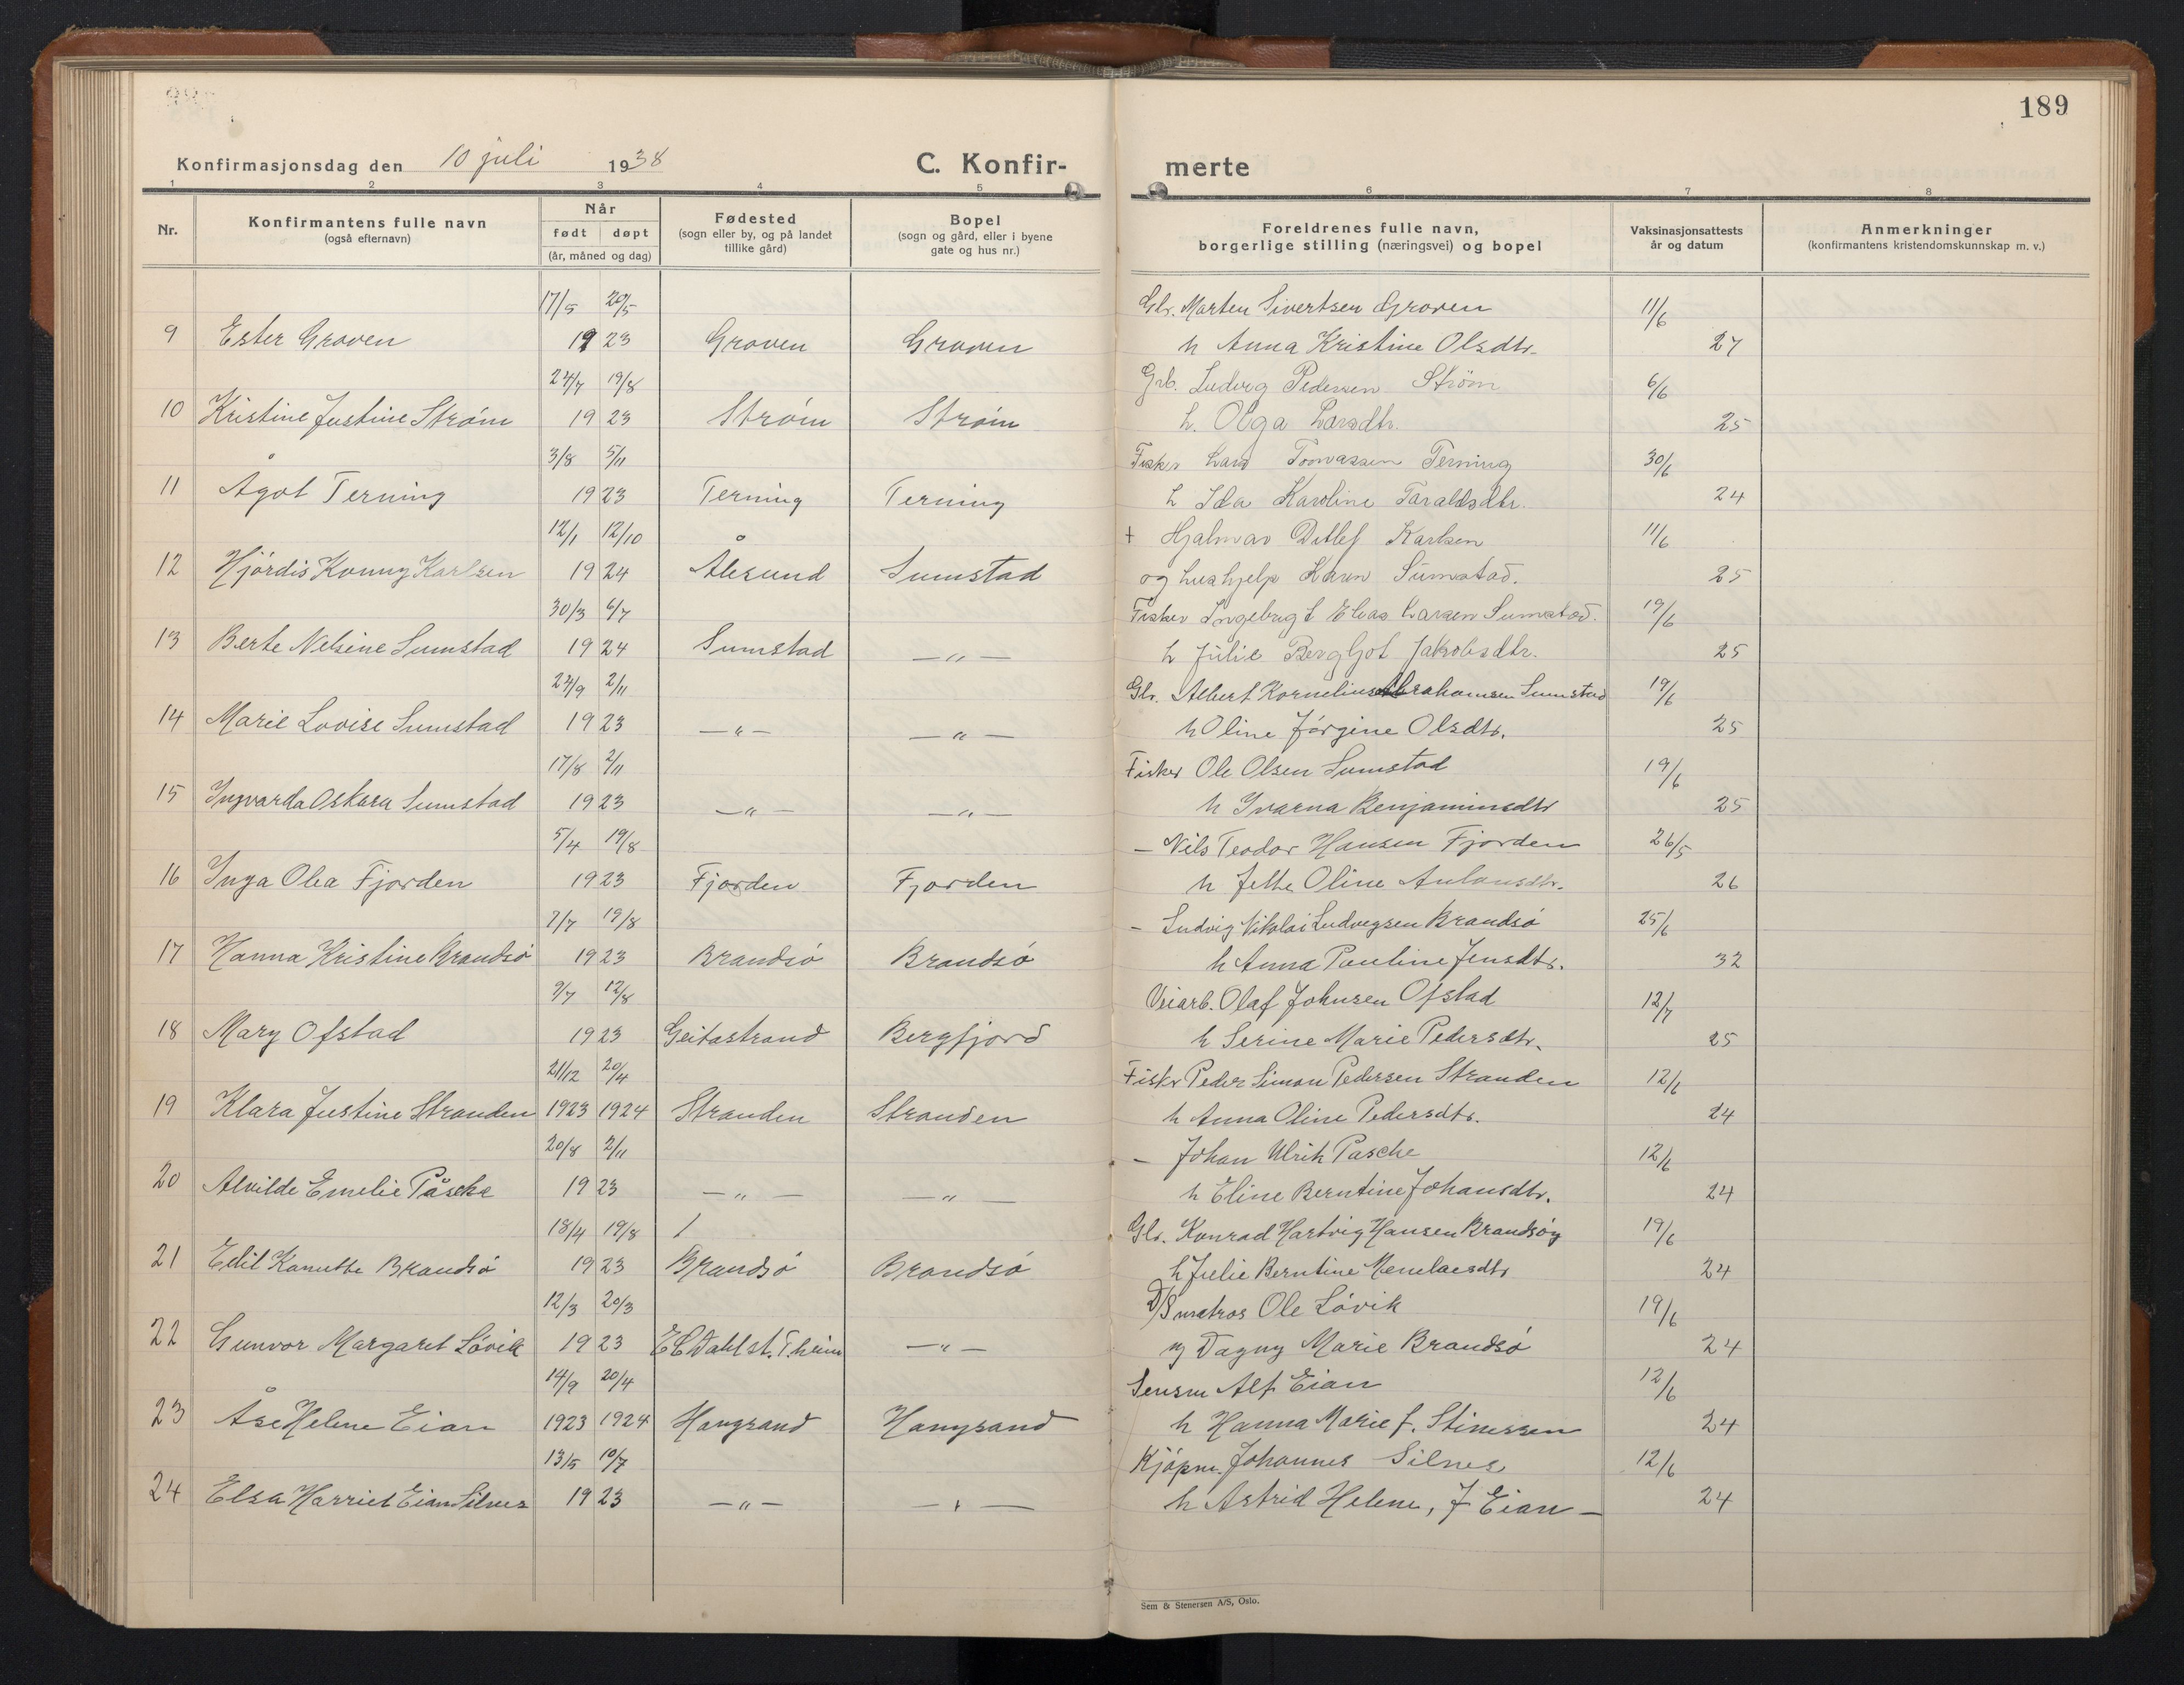 189
Konfirmasjonsdag den 10 juli 1938
C. Konfirmerte
1 2 3 4 5 6 7 8
Nr.
Konfirmantens fulle navn
(også efternavn)
Når
født døpt
(år, måned og dag)
Fødested
(sogn eller by, og på landet
tillike gård)
Bopel
(sogn og gård, eller i byene
gate og hus nr.)
Foreldrenes fulle navn,
borgerlige stilling (næringsvei) og bopel
Vaksinasjonsattests
år og datum
Anmerkninger
(konfirmantens kristendomskunnskap m. v.)
17/5 20/5 Gbr. Marten Sivertsen Groven 11/6
9 Ester Groven 1923 Groven Groven h Anna Kristine Olsdtr. 27
24/7 19/8 Grb. Ludvig Pedersen Strøm 6/6
10 Kristine Justine Strøm 1923 Strøm Strøm h. Olga Larsdtr. 25
3/8 5/11 Fisker Lars Tomassen Terning 30/6
11 Ågot Terning 1923 Terning Terning h Ida Karoline Taraldsdtr. 24
12/1 12/10 + Hjalmar Ditlef Karlsen 11/6
12 Hjørdis Konny Karlsen 1924 Ålesund Sumstad og hushjelp Karen Sumstad. 25
30/3 6/7 Fisker Ingebrigt Elias Larsen Sumstad. 19/6
13 Berte Nelsine Sumstad 1924 Sumstad —"— h Julie Bergljot Jakobsdtr. 25
24/9 2/11 Gbr. Albert Kornelius Abrahamsen Sumstad 19/6
14 Marie Lovise Sumstad 1923 —"— —"— h Oline Jørgine Olsdtr. 25
17/8 2/11 Fisker Ole Olsen Sumstad 19/6
15 Ingvarda Oskara Sumstad 1923 —"— —"— h Ivarna Benjaminsdtr 25
5/4 19/8 — Nils Teodor Hansen Fjorden 26/5
16 Inga Olea Fjorden 1923 Fjorden Fjorden h Jette Oline Antonsdtr. 26
7/7 19/8 — Ludvig Nikolai Ludvigsen Brandsø 25/6
17 Hanna Kristine Brandsø 1923 Brandsø Brandsø h Anna Pauline Jensdtr. 32
9/7 12/8 Veiarb. Olaf Johnsen Ofstad 12/7
18 Mary Ofstad 1923 Geitastrand Bergfjord h Serine Marie Pedersdtr. 25
21/12 20/4 Fisker Peder Simon Pedersen Stranden 12/6
19 Klara Justine Stranden 1923 1924 Stranden Stranden h Anna Oline Pedersdtr. 24
20/8 2/11 — Johan Ulrik Pasche 12/6
20 Alvilde Emelie Påscke 1923 —"— —"— h Eline Berntine Johansdtr. 24
18/4 19/8 Gbr. Konrad Hartvig Hansen Brandsøy 19/6
21 Edit Kanutte Brandsø 1923 Brandsø Brandsø h Julie Berntine Menelaesdtr 24
12/3 20/3 D/S matros Ole Løvik 19/6
22 Gunvor Margaret Løvik 1923 E C Dahl st. T.heim —"— og Dagny Marie Brandsø 24
14/9 20/4 Lensm Alf Eian 12/6
23 Åse Helene Eian 1923 1924 Hongsand Hongsand h Hanna Marie f. Stinessen 24
13/5 10/7 Kjøpm. Johannes Silnes 12/6
24 Elsa Harriet Eian Silnes 1923 —"— —"— h Astrid Helene, f Eian — 24
Sem & Stenersen A/S, Oslo.